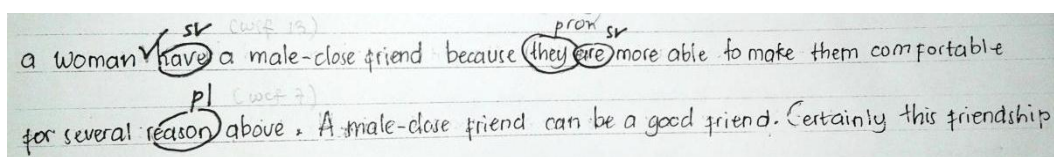 sv (wcf 13) pron sv
a woman have a male-close friend because they are more able to make them comfortable
pl (wcf 7)
for several reason above. A male-close friend can be a good friend. Certainly this friendship